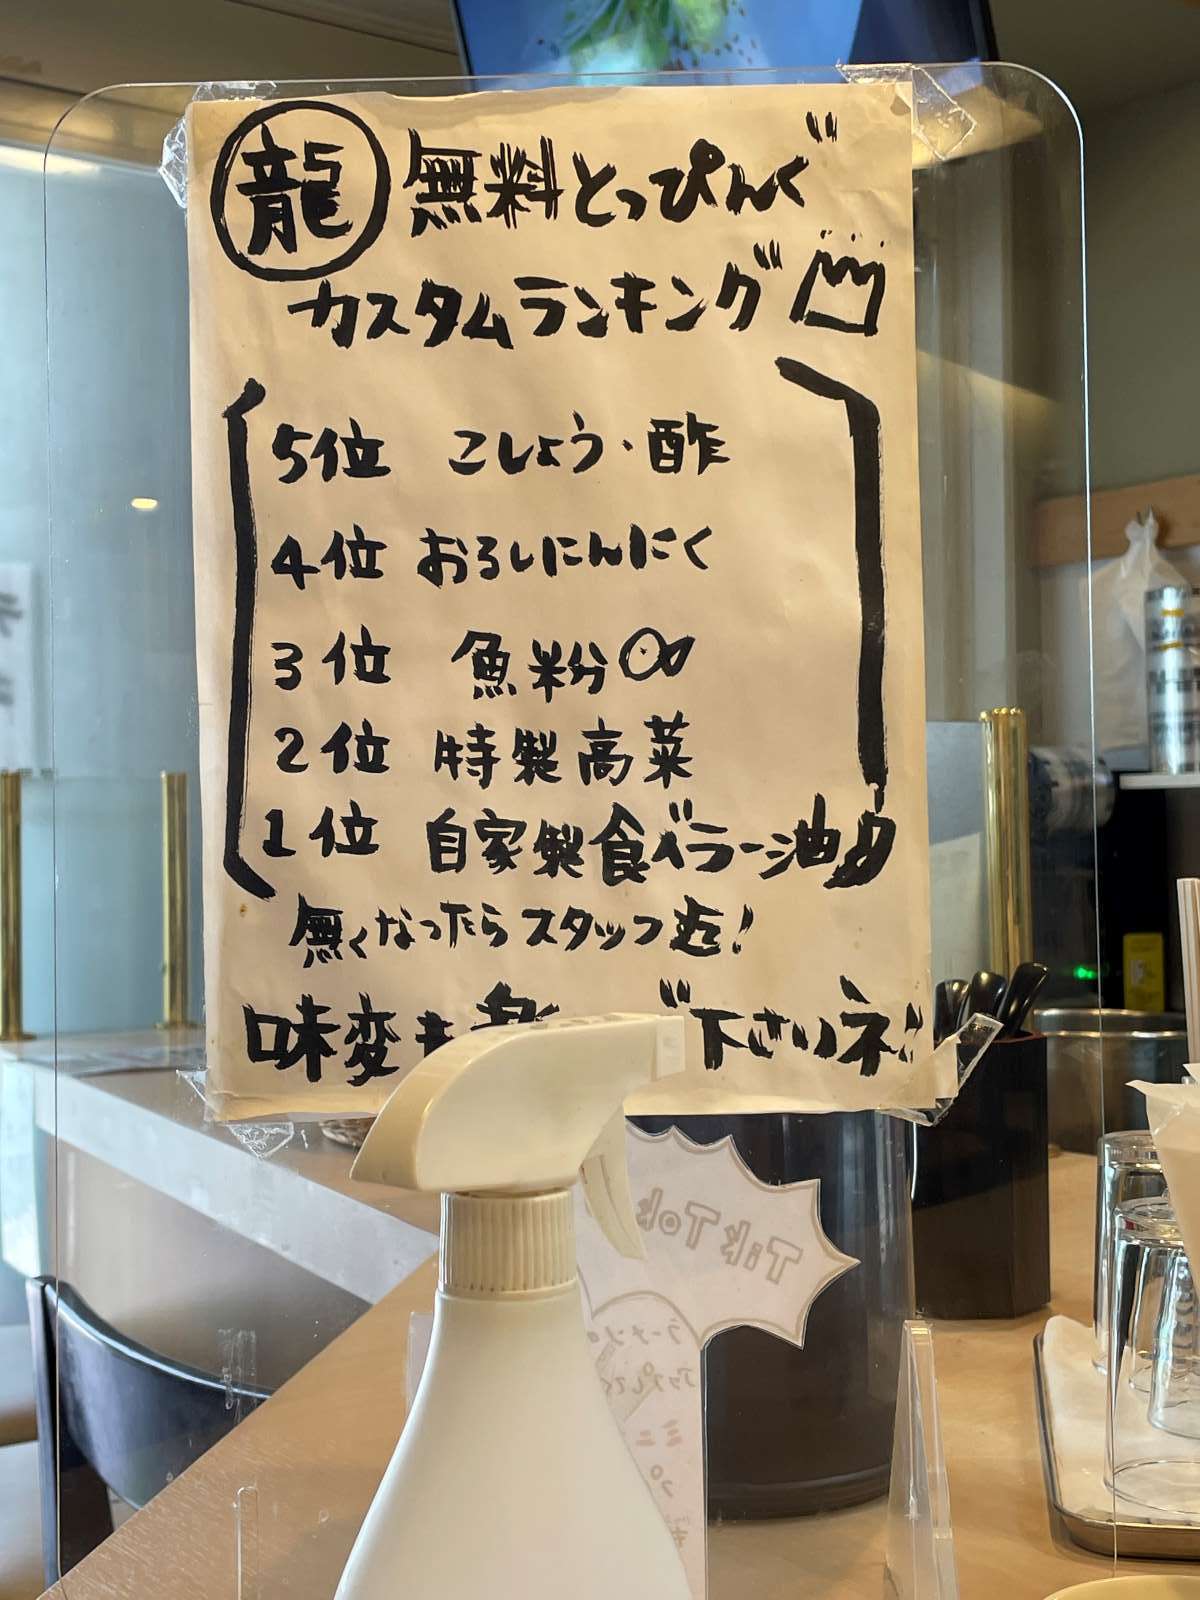 龍 無料とっぴんぐ
カスタムランキング
5位 こしょう・酢
4位 おろしにんにく
3位 魚粉
2位 特製高菜
1位 自家製食べラー油
無くなったらスタッフ迄!
味変も 下さいネ!!
TikTok
ラーメンの
アップして
ミニ